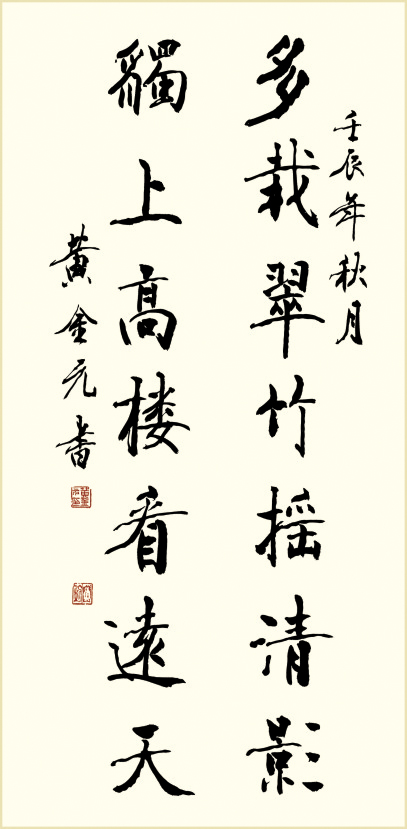 壬辰年秋月
多栽翠竹摇清影
獨上高楼看遠天
黄金元書